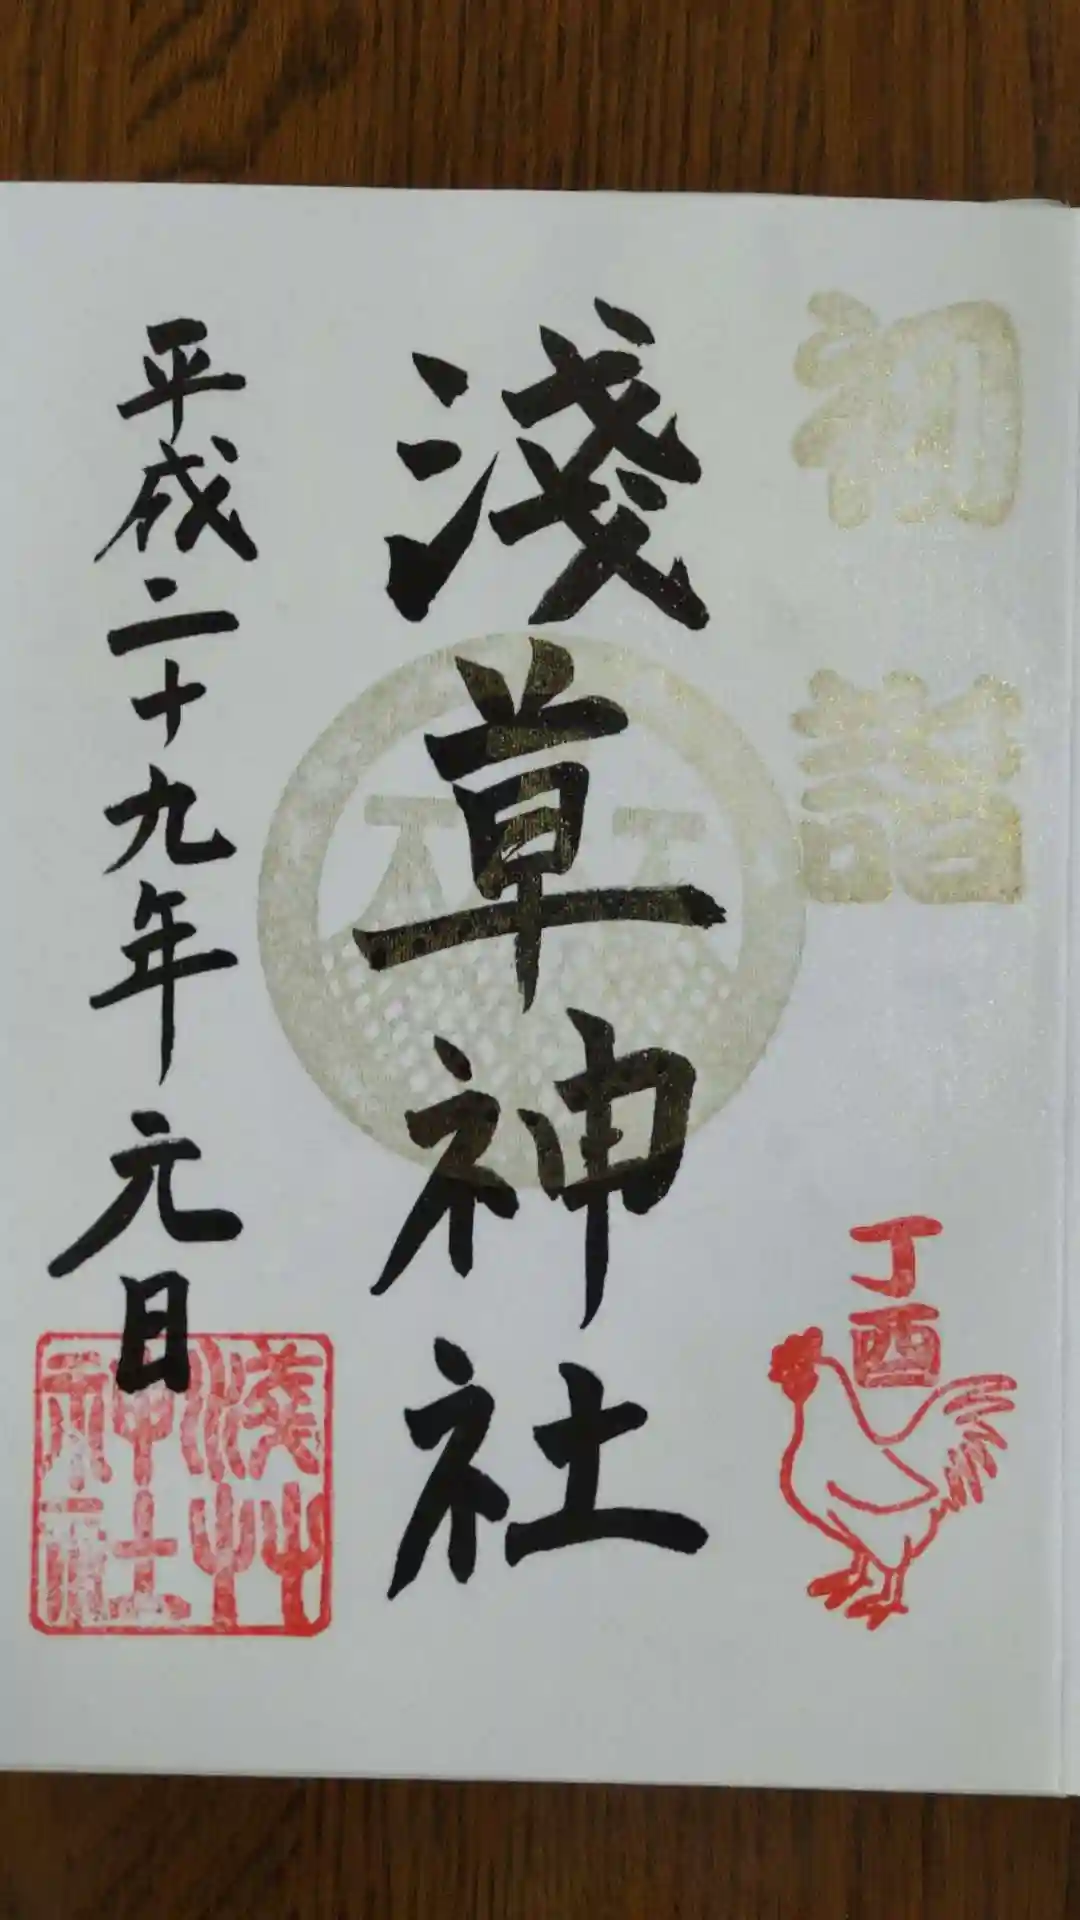 初詣
丁酉
淺草神社
平成二十九年元日
淺草
神社